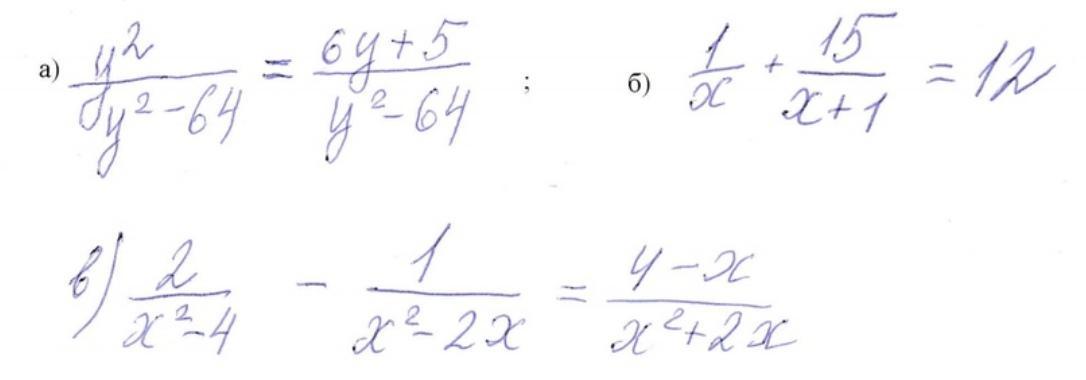 а) y²/(y²-64) = (6y+5)/(y²-64) ; б) 1/x + 15/(x+1) = 12
в) 2/(x²-4) - 1/(x²-2x) = (4-x)/(x²+2x)